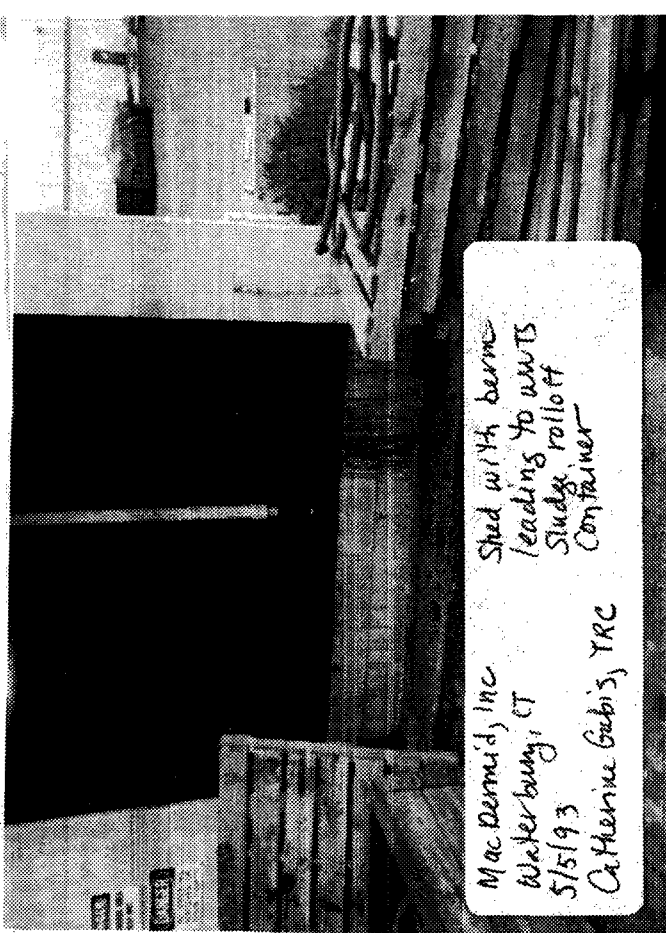 MacDermid, Inc
Waterbury, CT
5/5/93
Catherine Gabis, TRC
Shed with berm
leading to WWTS
Sludge rolloff
Container